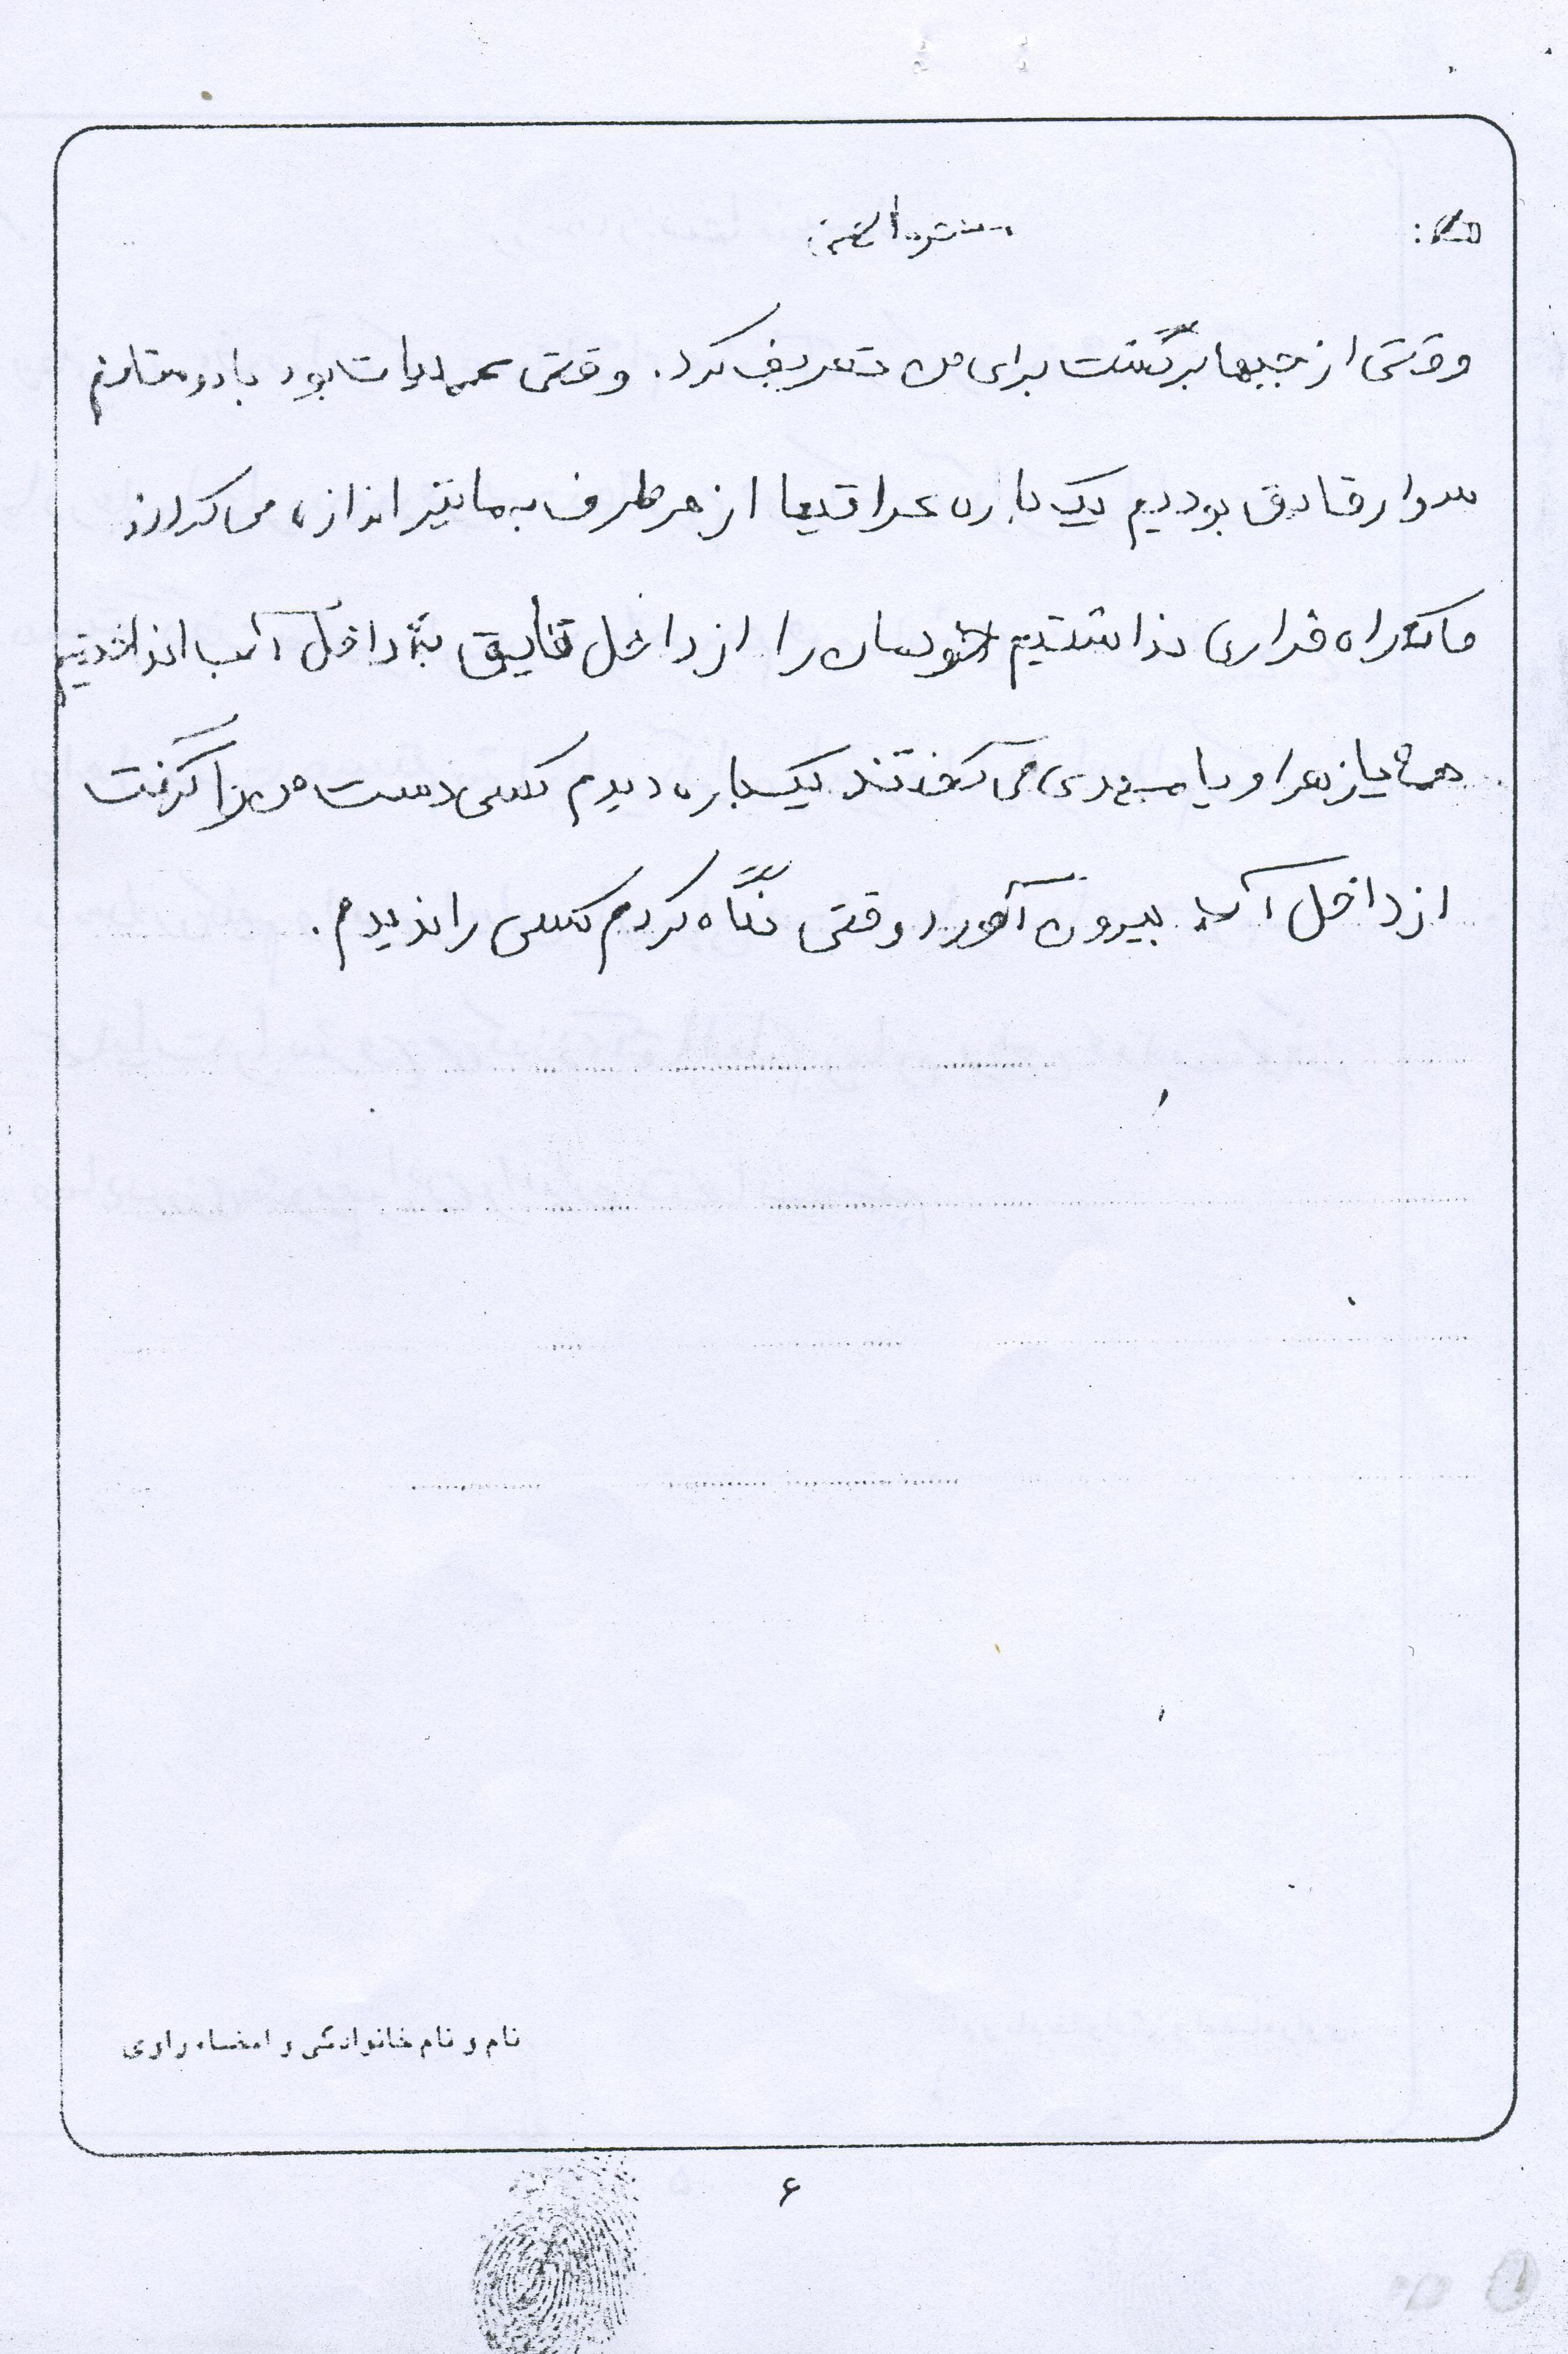 وقتی از جبهها برگشت برای من تعریف کرد. وقتی عملیات بود با دوستانم
سوار قایق بودیم یک باره عراقیها از هر طرف به ما تیر اندازی می کردند
ما که راه فراری نداشتیم خودمان را از داخل قایق به داخل آب انداختیم
همه یا زهرا و یا مهدی می گفتند یکباره دیدم کسی دست من را گرفت
از داخل آب بیرون آورد وقتی نگاه کردم کسی را ندیدم.
نام و نام خانوادگی و امضاء راوی
۶